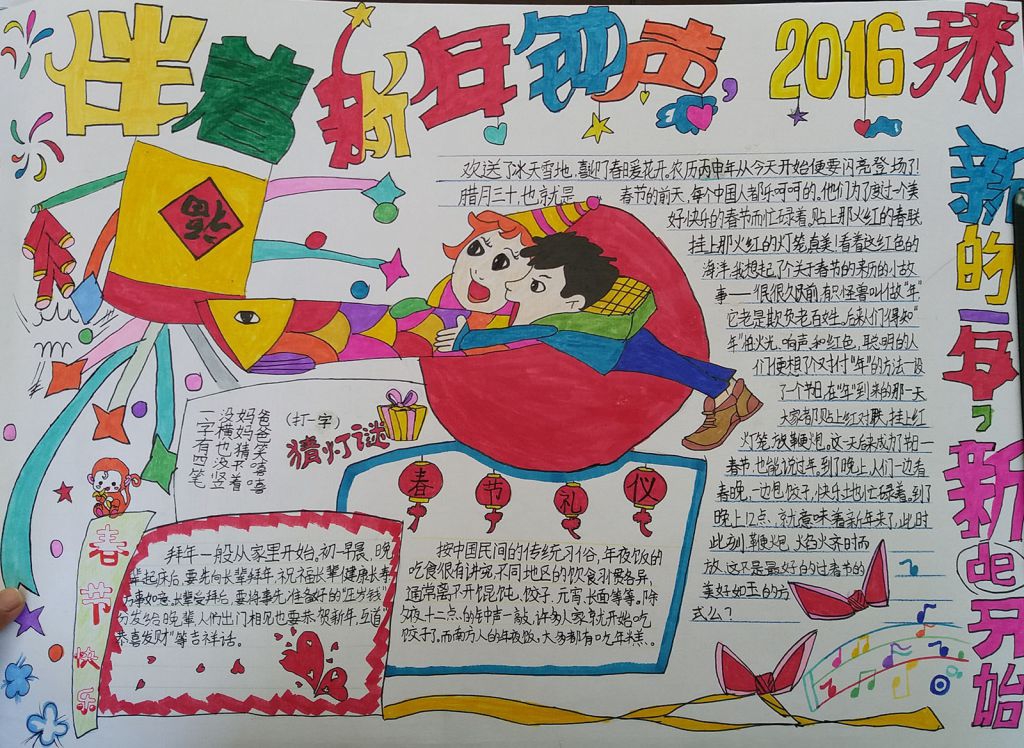 伴着新年钟声,2016 球
新的一年,新de开始
福
欢送了冰天雪地,喜迎了春日暖花开。农历丙申年从今天开始便要闪亮登场了!
腊月三十,也就是春节的前天,每个中国人都乐呵呵的。他们为了度过个美
好快乐的春节而忙碌着。贴上那火红的春联
挂上那火红的灯笼,真美!看着这红色的
海洋,我想起了个关于春节的来历的小故
事——很很久以前,有只怪兽叫做"年"
它老是欺负老百姓。后来人们得知"
年"怕火光、响声,和红色,聪明的人
们便想了个对付"年"的方法—设
了一个节日,在"年"到来的那一天
大家都贴上红对联,挂上红
灯笼,放鞭炮。这一天后来成为了节日—
春节,也能说过年。到了晚上,人们一边看
春晚,一边包饺子,快乐地忙碌着。到了
晚上12点,就意味着新年来了,此时
此刻,鞭炮,焰火齐时而
放,这不是最好的过春节的
美好如玉的方
式么?
(打一字)
猜灯谜
爸爸笑嘻嘻
妈妈猜不着
没横也没竖
一字有四笔
春节礼仪
春节快乐
拜年一般从家里开始。初一早晨、晚
辈起床后,要先向长辈拜年,祝福长辈健康长寿
万事如意。长辈受拜后,要将事先准备好的"压岁钱"
分发给晚辈。人们出门相见也要恭贺新年,互道
"恭喜发财"等吉祥话。
按中国民间的传统习俗,年夜饭的
吃食很有讲究,不同地区的饮食习惯各异,
通常离不开馄饨、饺子、元宵、长面等等。除
夜,十二点的钟声一敲,许多人家就开始吃
饺子了,而南方人的年夜饭,大多都有吃年糕。